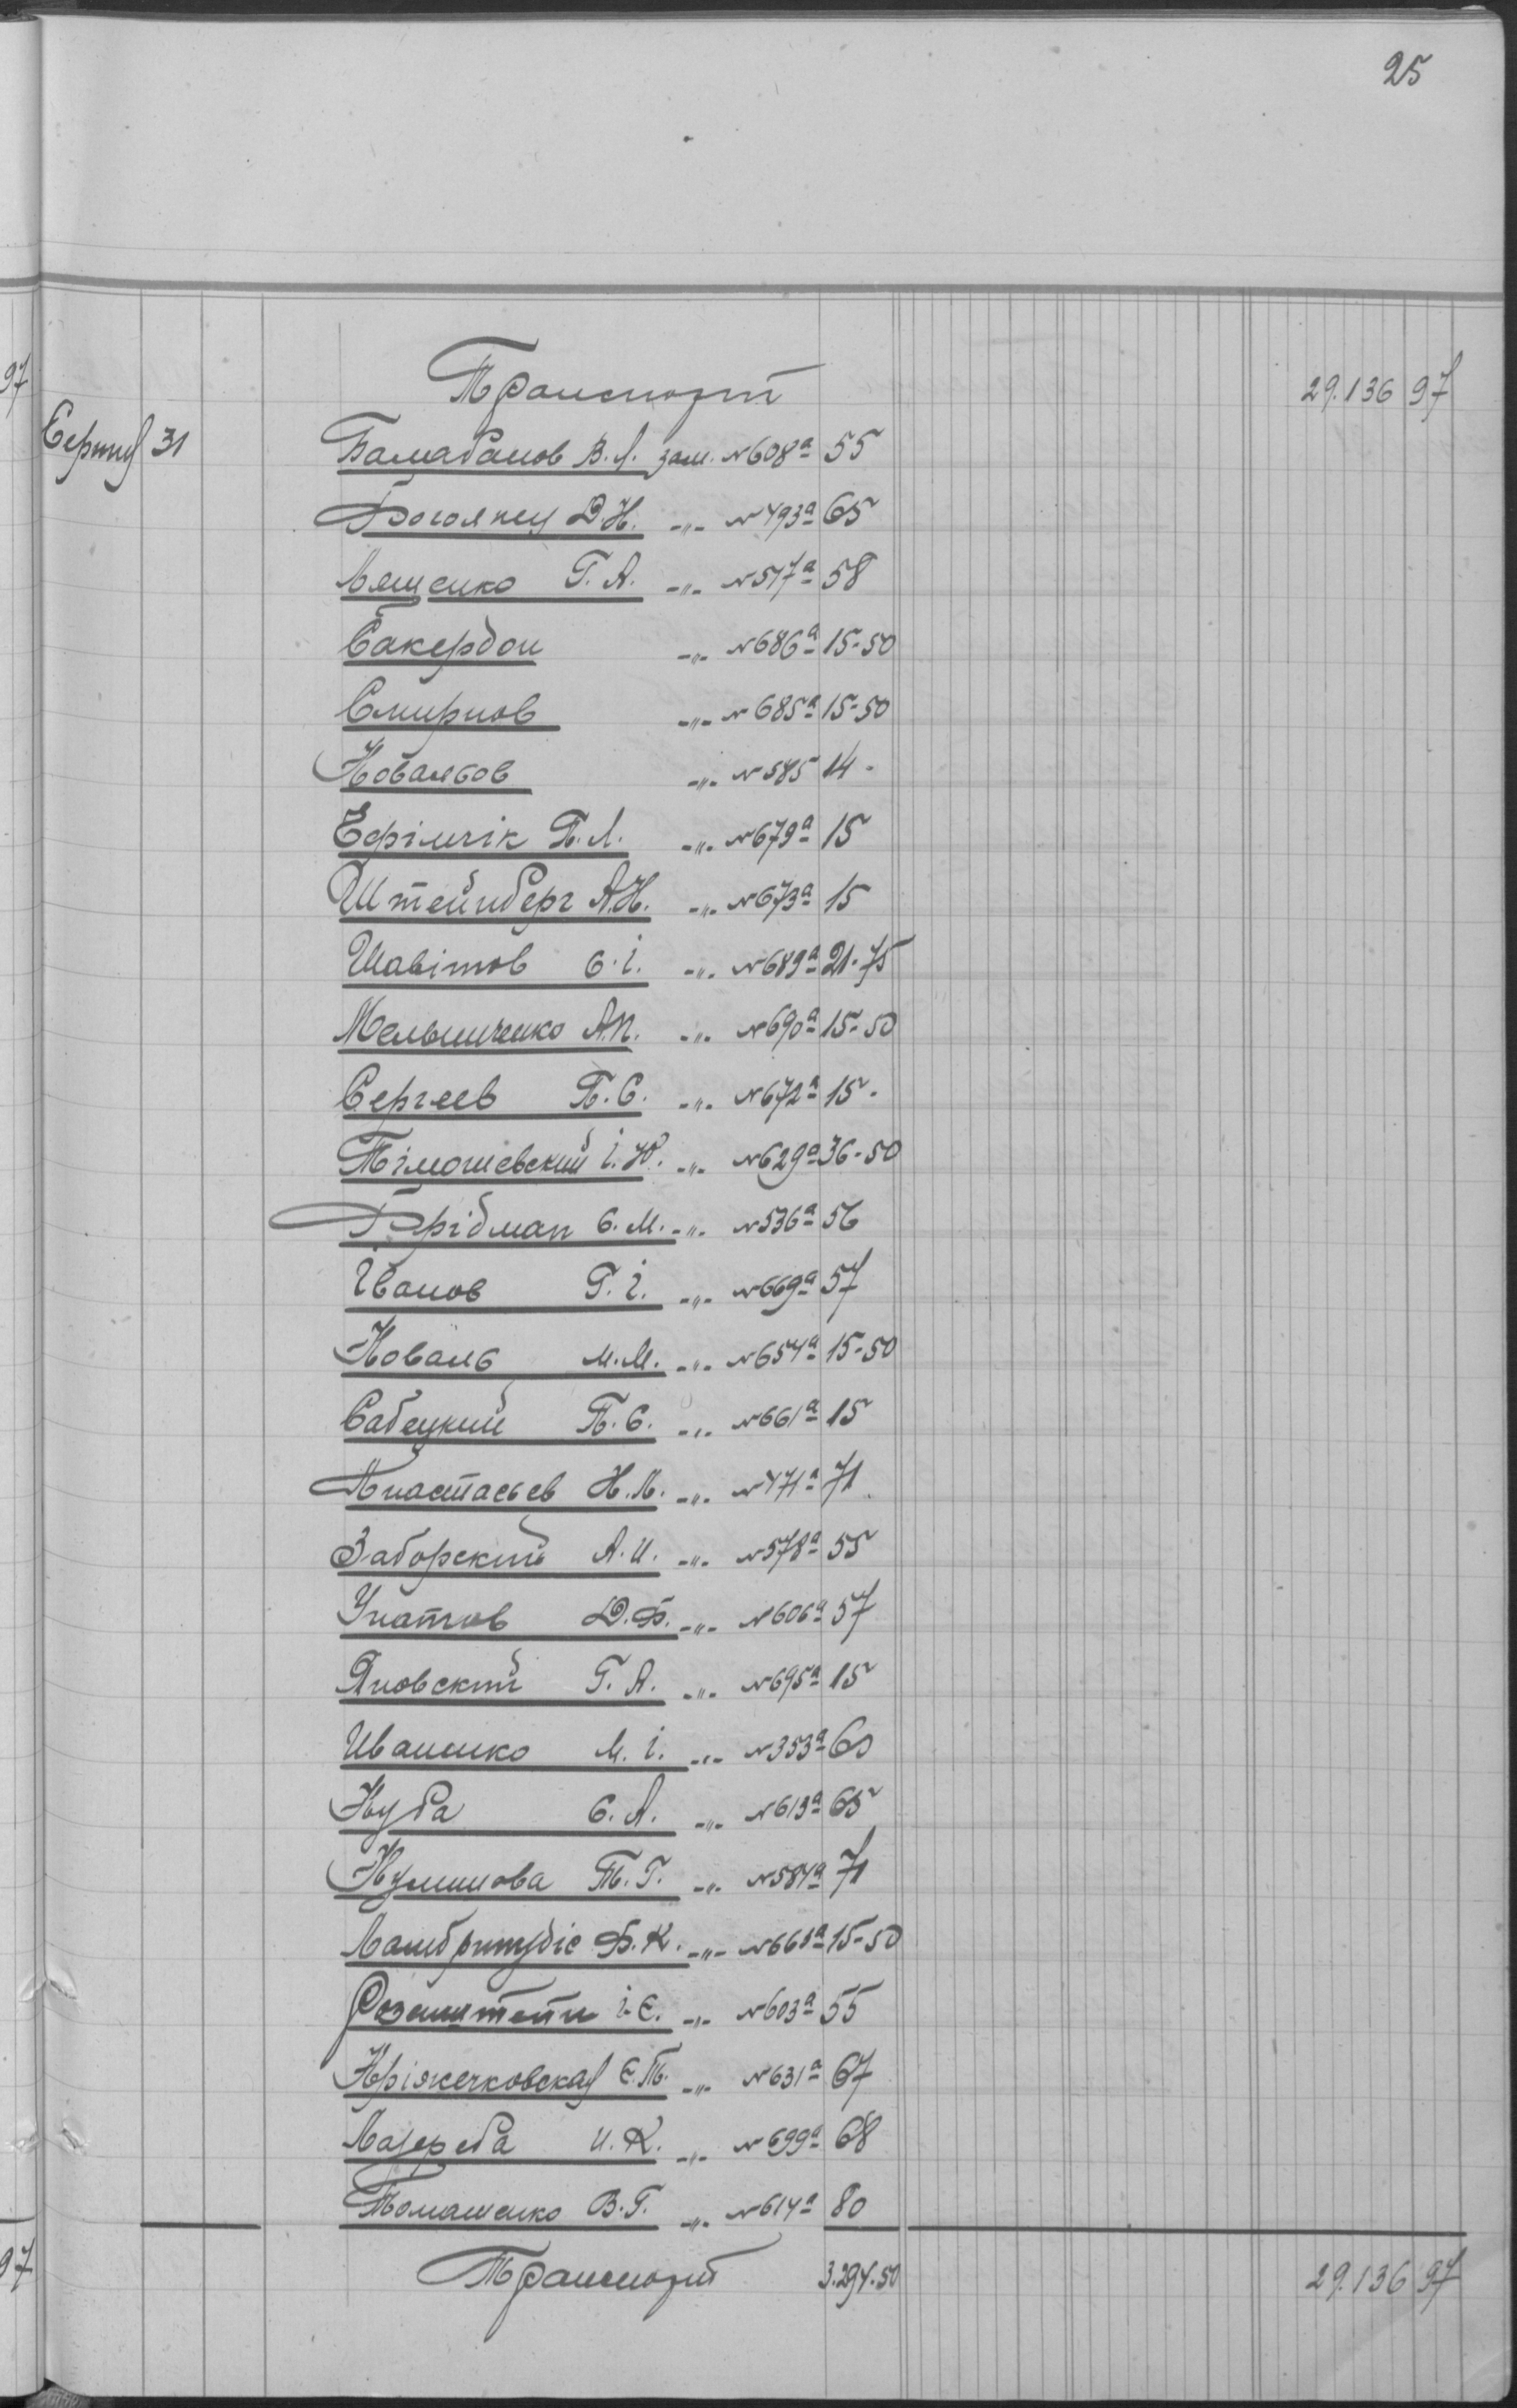 25
97
Транспорт 29.136 97
Серпня 31 Балабанов В.Л. зам. №608а 55
Боголянец Д.Н. -"- №493а 65
Лященко Г.А. -"- №517а 58
Сакердон -"- №686а 15-50
Смирнов -"- №685а 15-50
Ковальов -"- №585 14-
Ефімчік П.Л. -"- №679а 15
Штейнберг А.Н. -"- №673а 15
Шавітов С.І. -"- №689а 21-75
Мельниченко А.П. -"- №690а 15-50
Сергеев П.С. -"- №672а 15-
Тімошевский І.Ю. -"- №629а 36-50
Фрідман С.М. -"- №536а 56
Іванов Г.І. -"- №669а 57
Коваль М.М. -"- №654а 15-50
Сабецкий П.С. -"- №661а 15
Анастасьев Н.М. -"- №471а 71
Заборский А.И. -"- №578а 55
Д.Ф. -"- №606а 57
Яновский Г.А. -"- №695а 15
Иваненко М.І. -"- №353а 60
Куба С.А. -"- №613а 65
Т.Г. -"- №584а 71
Ф.К. -"- №668а 15-50
Розенштейн І.Є. -"- №603а 55
Кріжечковская Є.Т. -"- №631а 67
И.К. -"- №699а 68
Томашенко В.Г. -"- №614а 80
97
Транспорт 3.294.50 29.136 97